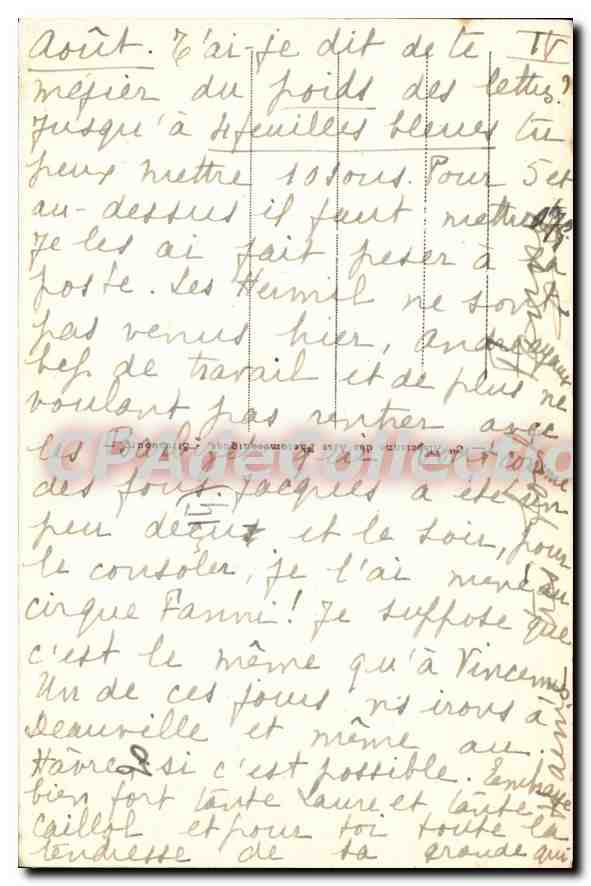 Août. T'ai-je dit de te IV
méfier du poids des lettres?
Jusqu'à 4 feuilles bleues tu
peux mettre 10 sous. Pour 5 et
au-dessus il faut mettre
Je les ai fait peser à la
poste. Les ne sont
pas venus hier, ayant
bcp de travail et de plus ne
voulant pas rentrer avec
les
des fous. Jacques a été un
peu deçu et le soir, pour
le consoler, je l'ai mené au
cirque Fanni! Je suppose que
c'est le même qu'à Vincennes.
Un de ces jours ns irons à
Deauville et même au
Hâvre si c'est possible. Embrasse
bien fort tante Laure et tante
Caillol et pour toi toute la
tendresse de ta grande qui
CPA de Collection